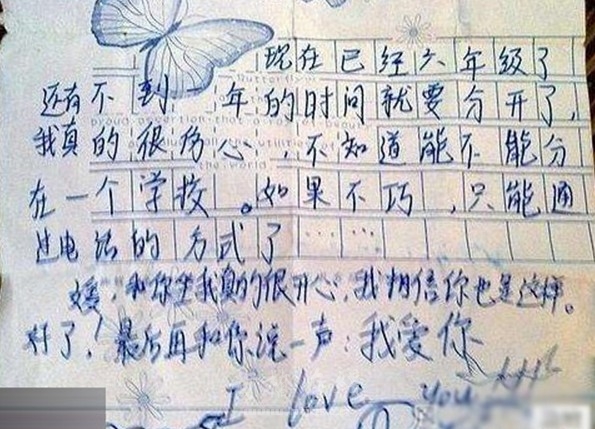 现在已经六年级了
还有不到一年的时间就要分开了，
我真的很伤心，不知道能不能分
在一个学校。如果不巧，只能通
过电话的方式了……
媛，和你坐我真的很开心，我相信你也是这样。
好了！最后再和你说一声：我爱你
I love you